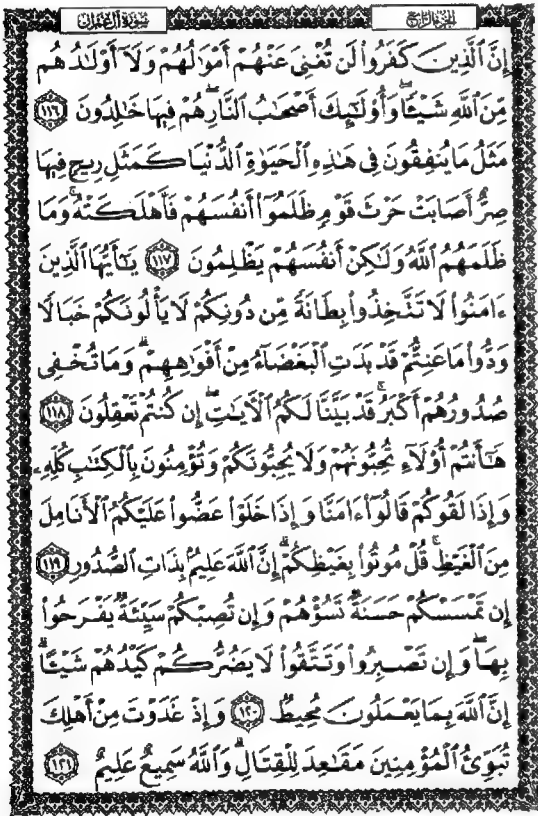 سُورَةُ آلِ عِمْرَانَ
الجُزْءُ الرَّابِعُ
إِنَّ ٱلَّذِينَ كَفَرُواْ لَن تُغْنِىَ عَنْهُمْ أَمْوَٰلُهُمْ وَلَآ أَوْلَٰدُهُم
مِّنَ ٱللَّهِ شَيْـًٔا ۖ وَأُوْلَٰٓئِكَ أَصْحَٰبُ ٱلنَّارِ ۚ هُمْ فِيهَا خَٰلِدُونَ ١١٦
مَثَلُ مَا يُنفِقُونَ فِى هَٰذِهِ ٱلْحَيَوٰةِ ٱلدُّنْيَا كَمَثَلِ رِيحٍ فِيهَا
صِرٌّ أَصَابَتْ حَرْثَ قَوْمٍ ظَلَمُوٓاْ أَنفُسَهُمْ فَأَهْلَكَتْهُ ۚ وَمَا
ظَلَمَهُمُ ٱللَّهُ وَلَٰكِنْ أَنفُسَهُمْ يَظْلِمُونَ ١١٧ يَٰٓأَيُّهَا ٱلَّذِينَ
ءَامَنُواْ لَا تَتَّخِذُواْ بِطَانَةً مِّن دُونِكُمْ لَا يَأْلُونَكُمْ خَبَالًا
وَدُّواْ مَا عَنِتُّمْ قَدْ بَدَتِ ٱلْبَغْضَآءُ مِنْ أَفْوَٰهِهِمْ وَمَا تُخْفِى
صُدُورُهُمْ أَكْبَرُ ۚ قَدْ بَيَّنَّا لَكُمُ ٱلْءَايَٰتِ ۖ إِن كُنتُمْ تَعْقِلُونَ ١١٨
هَٰٓأَنتُمْ أُوْلَآءِ تُحِبُّونَهُمْ وَلَا يُحِبُّونَكُمْ وَتُؤْمِنُونَ بِٱلْكِتَٰبِ كُلِّهِۦ
وَإِذَا لَقُوكُمْ قَالُوٓاْ ءَامَنَّا وَإِذَا خَلَوْاْ عَضُّواْ عَلَيْكُمُ ٱلْأَنَامِلَ
مِنَ ٱلْغَيْظِ ۚ قُلْ مُوتُواْ بِغَيْظِكُمْ ۗ إِنَّ ٱللَّهَ عَلِيمٌۢ بِذَاتِ ٱلصُّدُورِ ١١٩
إِن تَمْسَسْكُمْ حَسَنَةٌ تَسُؤْهُمْ وَإِن تُصِبْكُمْ سَيِّئَةٌ يَفْرَحُواْ
بِهَا ۖ وَإِن تَصْبِرُواْ وَتَتَّقُواْ لَا يَضُرُّكُمْ كَيْدُهُمْ شَيْـًٔا ۗ
إِنَّ ٱللَّهَ بِمَا يَعْمَلُونَ مُحِيطٌ ١٢٠ وَإِذْ غَدَوْتَ مِنْ أَهْلِكَ
تُبَوِّئُ ٱلْمُؤْمِنِينَ مَقَٰعِدَ لِلْقِتَالِ ۗ وَٱللَّهُ سَمِيعٌ عَلِيمٌ ١٢١